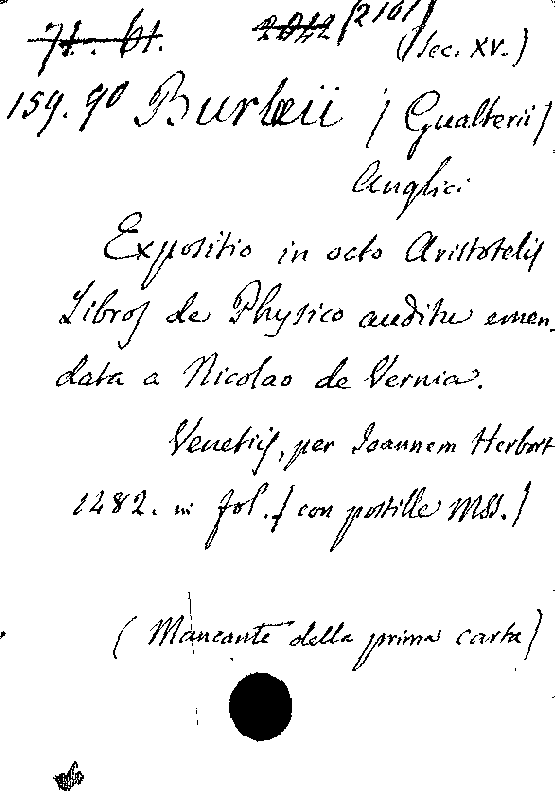 71. 61. 2042 (2101)
(Sec. XV.)
159.90 Burlæii (Gualterii)
Anglici
Expositio in octo Aristotelis
Libros de Physico auditu emen-
data a Nicolao de Vernia.
Venetiis, per Joannem Herbort
1482. in fol. (con postille MSS.)
(Mancante della prima carta)